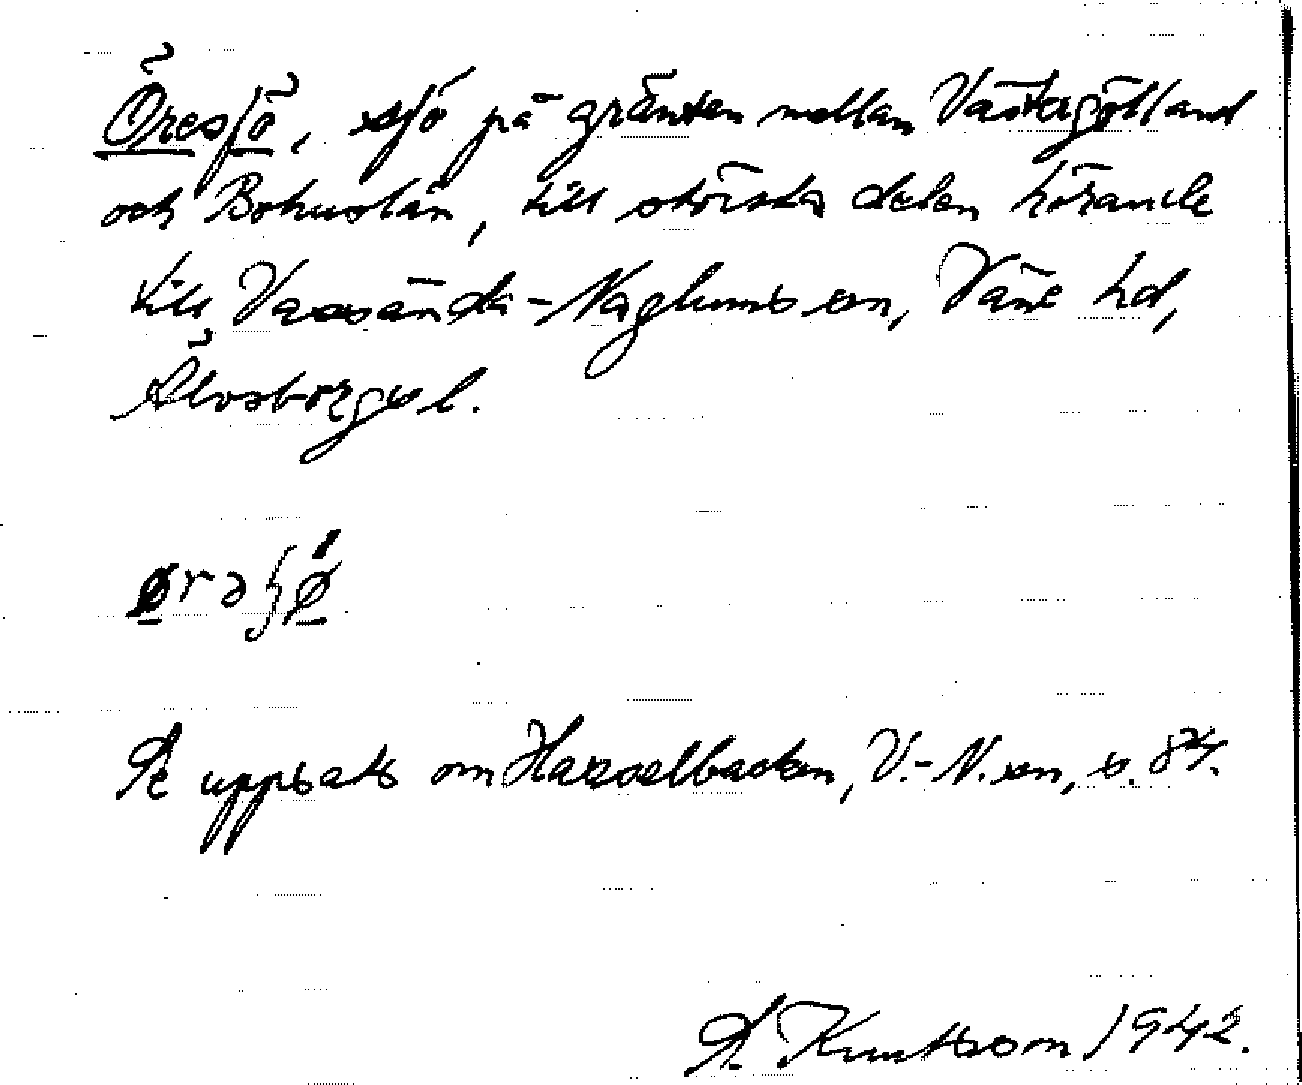 Öresjö, sjö på gränsen mellan Västergötland
och Bohuslän, till största delen hörande
till Vassända-Naglums sn, Väne hd,
Älvsborgs l.
ørəʃø
Se uppsats om Hasselbacken, V.-N. sn, s. 84.
A. Knutsson 1942.